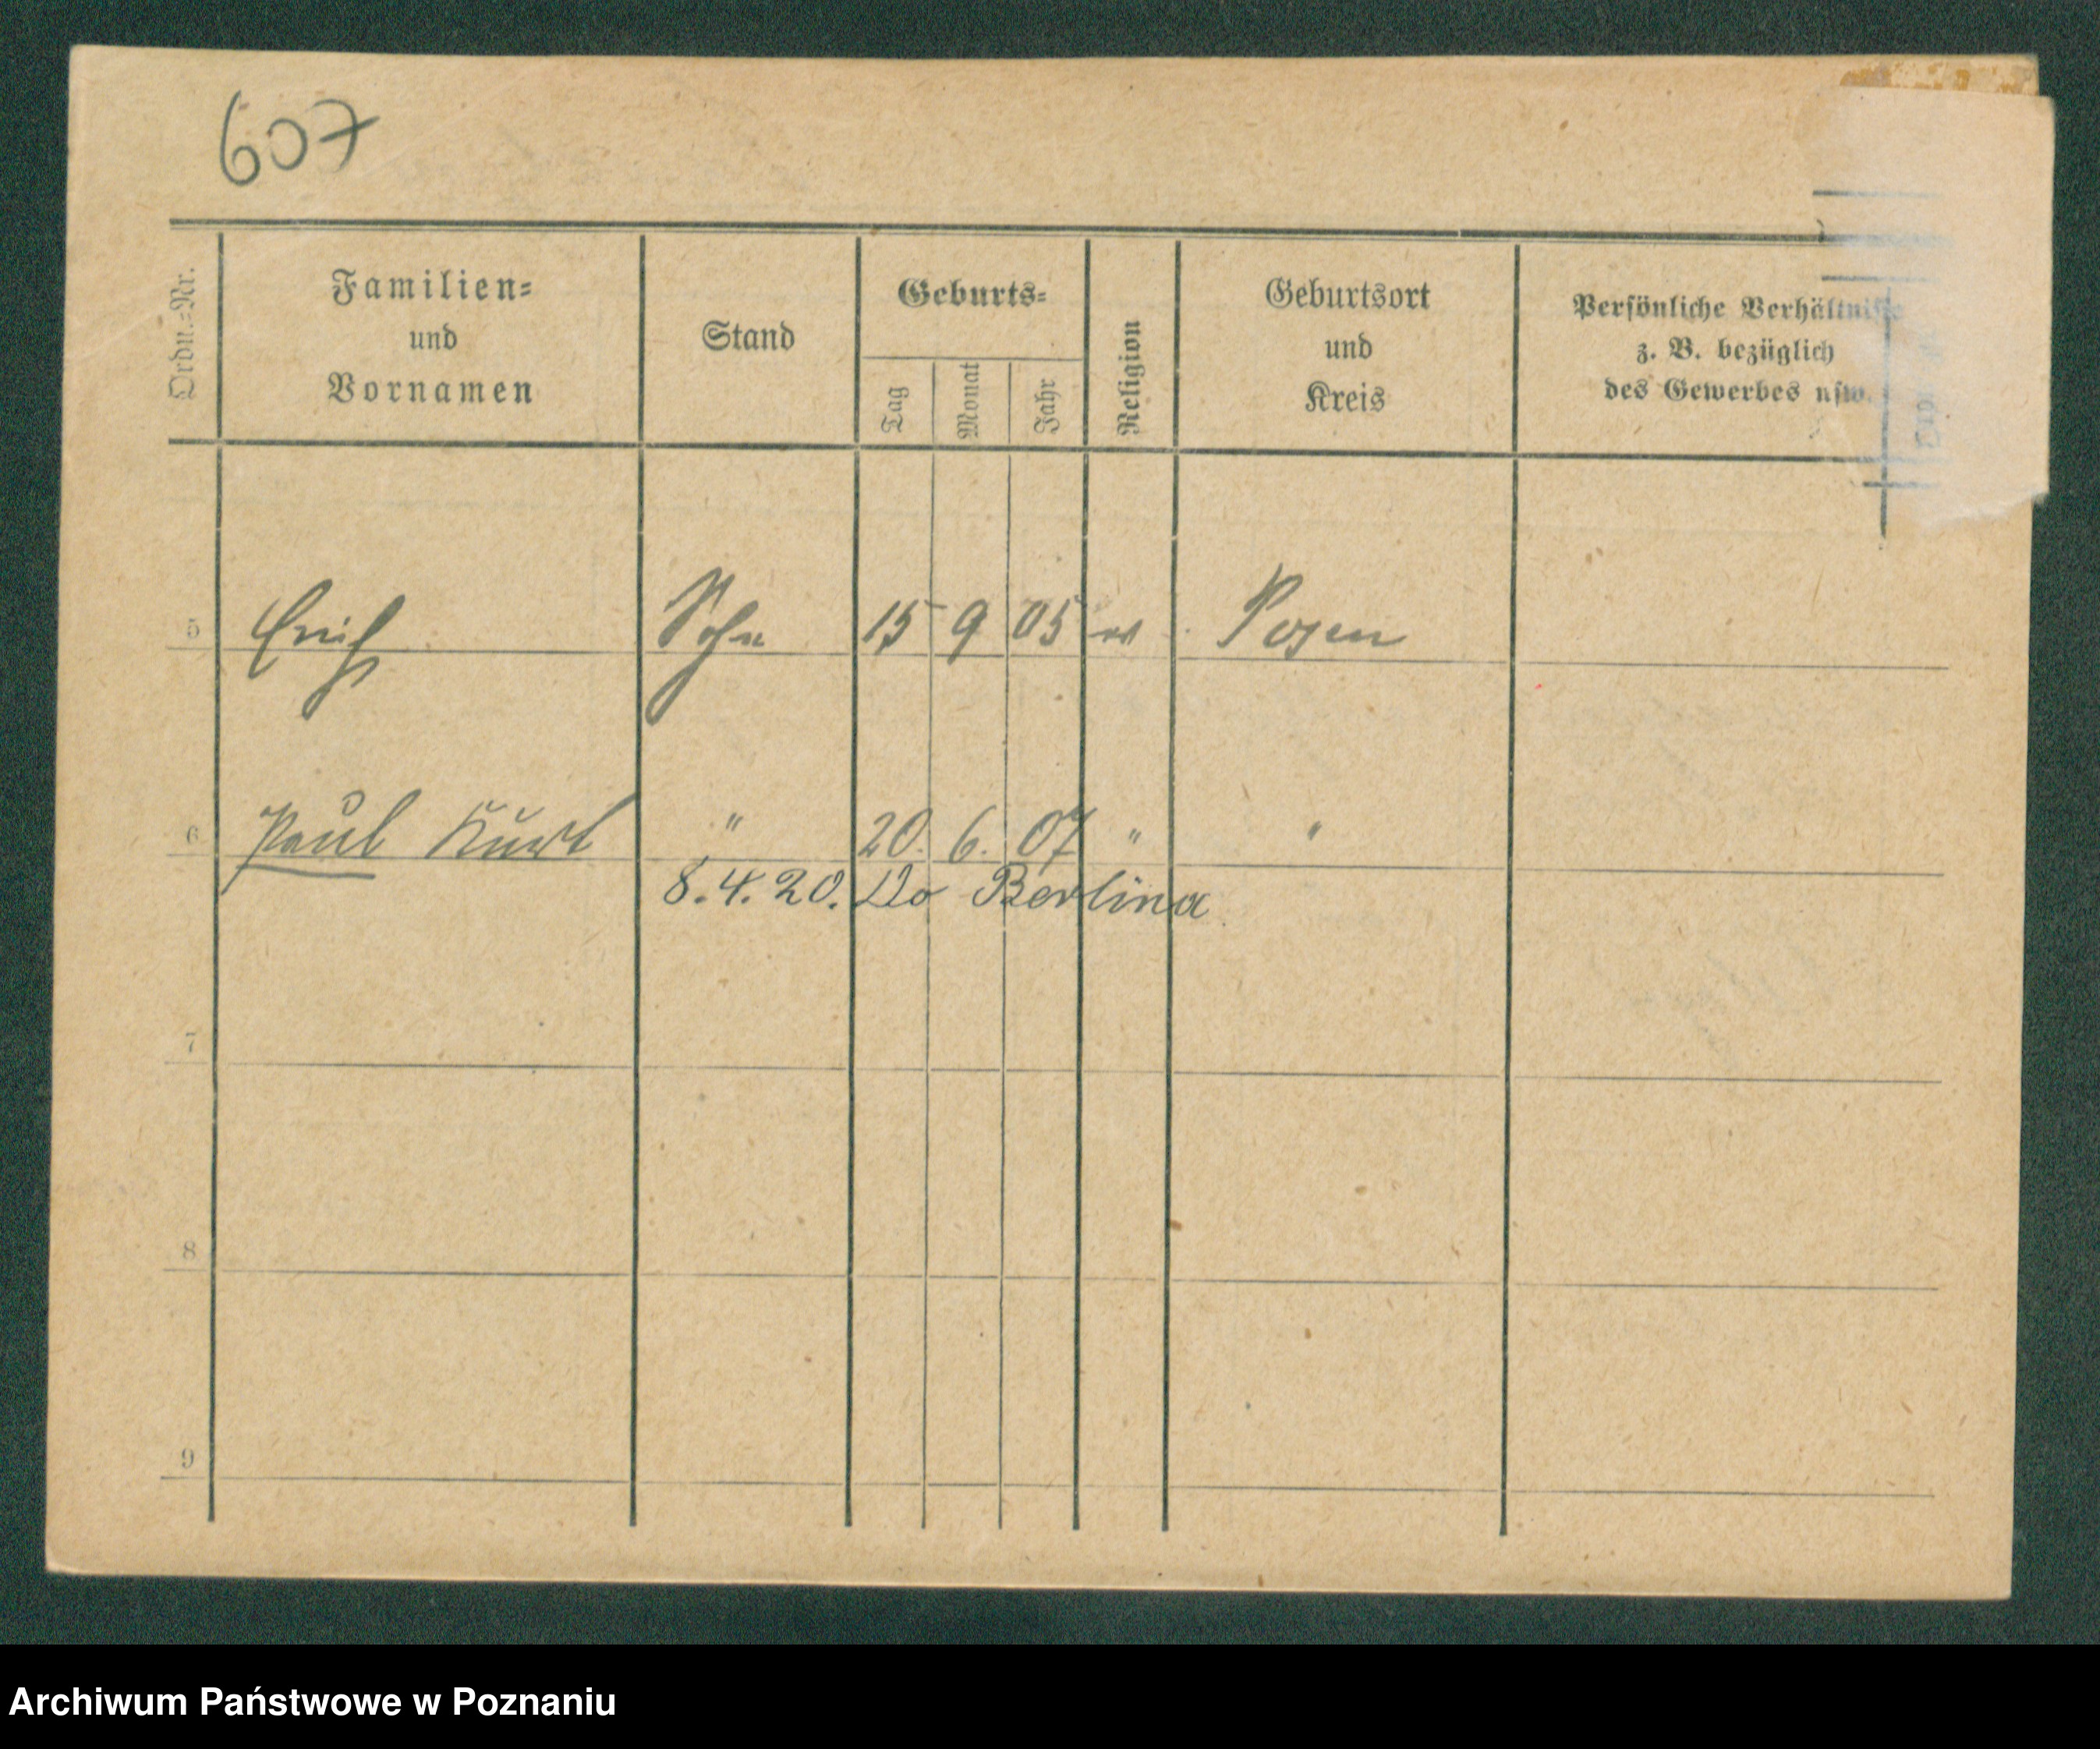 607
Ordn.-Nr. Familien= und Vornamen Stand Geburts= Tag Monat Jahr Religion Geburtsort und Kreis Persönliche Verhältnisse z. B. bezüglich des Gewerbes usw.
5 Erich Sohn 15 9 05 Posen
6 Paul Kurt " 20. 6. 07 " "
8.4.20. Do Berlina
7
8
9
Archiwum Państwowe w Poznaniu